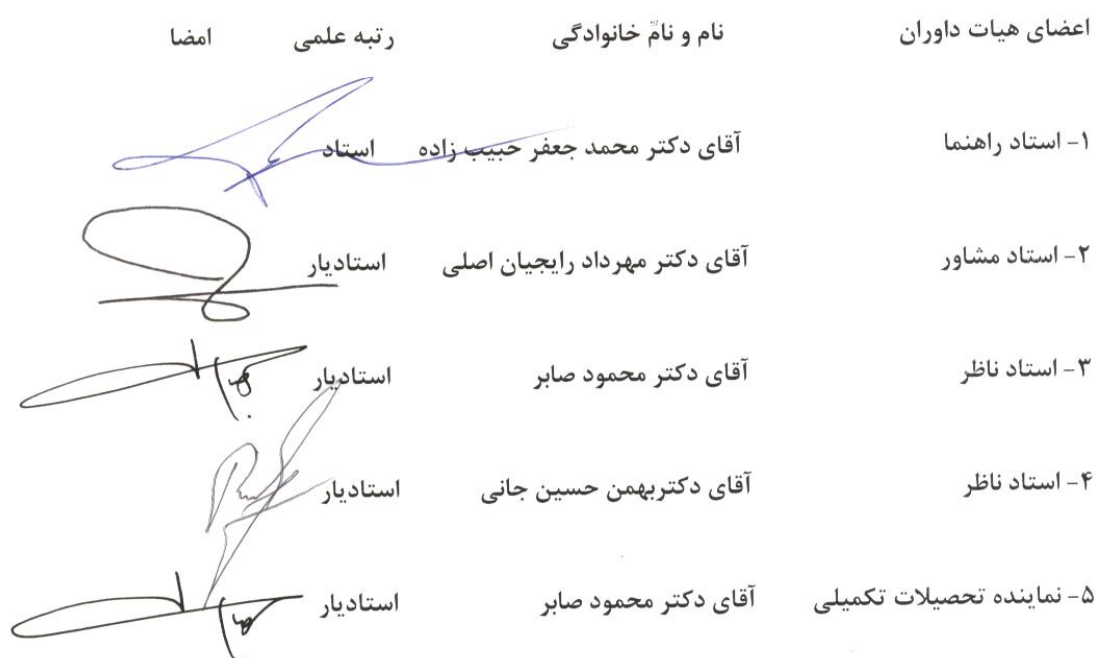 اعضای هیات داوران نام و نام خانوادگی رتبه علمی امضا
۱- استاد راهنما آقای دکتر محمد جعفر حبیب زاده استاد
۲- استاد مشاور آقای دکتر مهرداد رایجیان اصلی استادیار
۳- استاد ناظر آقای دکتر محمود صابر استادیار
۴- استاد ناظر آقای دکتربهمن حسین جانی استادیار
۵- نماینده تحصیلات تکمیلی آقای دکتر محمود صابر استادیار